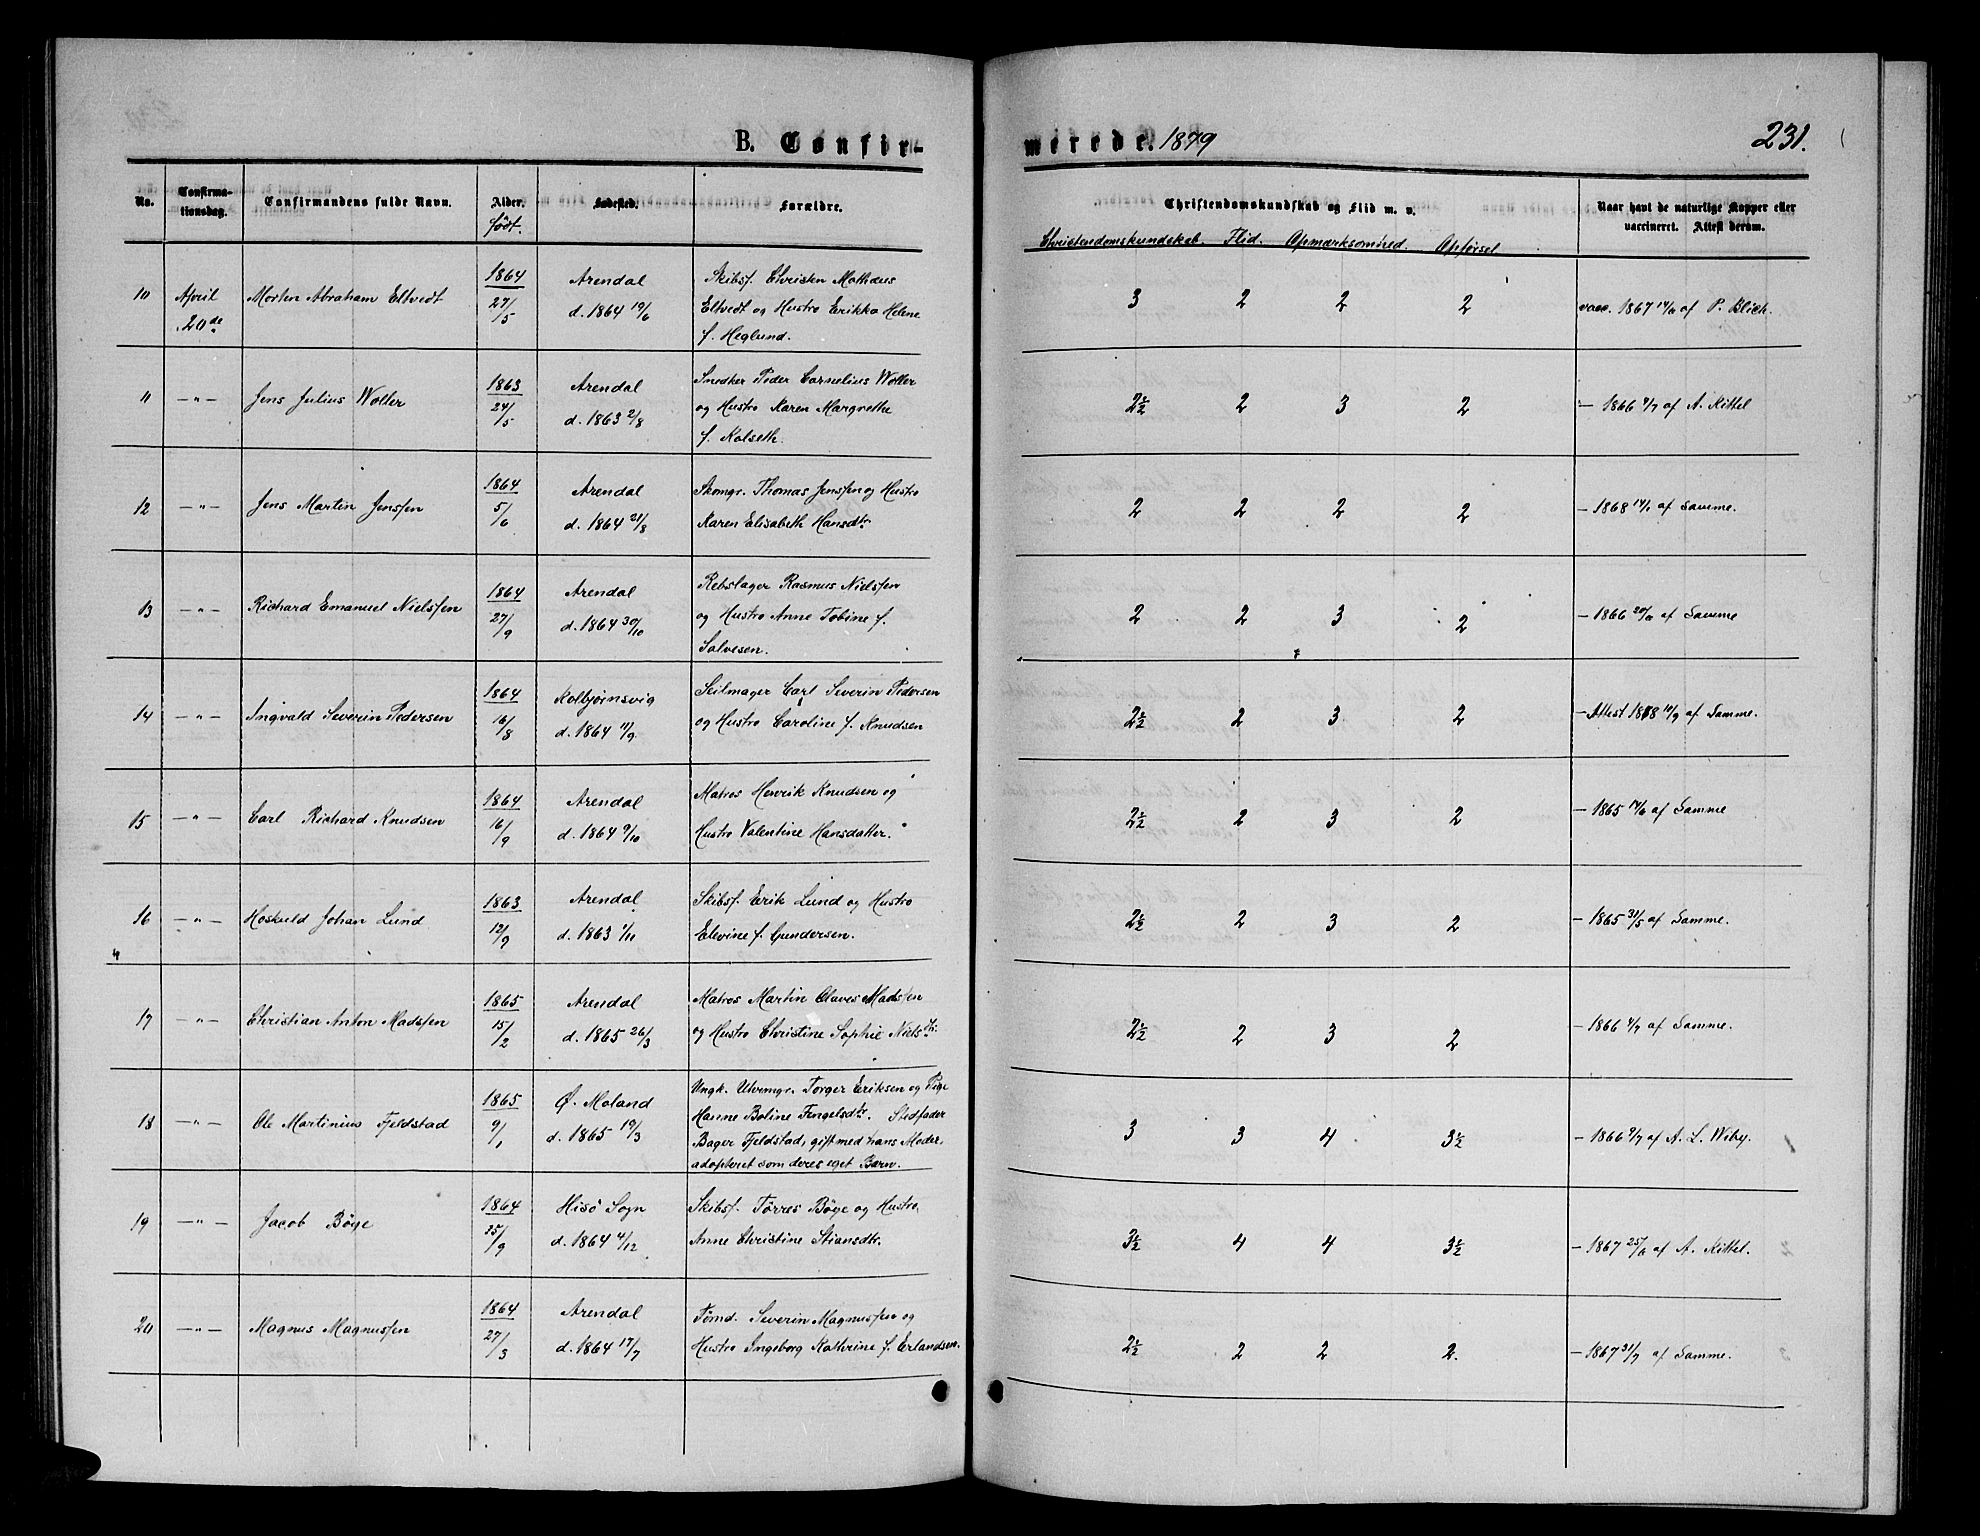 B. Confir-
merede. 1879
231.
No.
Confirma-
tionsdag.
Confirmandens fulde Navn.
Alder.
født.
Fødested.
Forældre.
Christendomskundskab og Flid m. v.
Christendomskundskab. Flid. Opmærksomhed. Opførsel
Naar havt de naturlige Kopper eller
vaccineret. Attest derom.
10 April 20de Morten Abraham Eltvedt 1864 27/5
Arendal
d. 1864 19/6
Skibsf. Christen Mathæus
Eltvedt og Hustro Erikka Helene
f. Heglund.
3 2 2 2
vacc. 1867 af P. Blich.
11 —"— Jens Julius Woller 1863 24/5
Arendal
d. 1863 2/8
Snedker Peder Cornelius Woller
og Hustro Karen Margrethe
f. Kolseth.
2½ 2 3 2
— 1866 af A. Kittel
12 —"— Jens Martin Jensen 1864 5/6
Arendal
d. 1864 21/8
Skomgr. Thomas Jensen og Hustro
Karen Elisabeth Hansdtr.
2 2 2 2
— 1868 af Samme.
13 —"— Richard Emanuel Nielsen 1864 27/9
Arendal
d. 1864 30/10
Rebslager Rasmus Nielsen
og Hustro Anne Tobine f.
Salvesen.
2 2 3 2
— 1866 af Samme
14 —"— Ingvald Severin Pedersen 1864 16/8
Kolbjørnsvig
d. 1864 11/9.
Seilmager Carl Severin Pedersen
og Hustro Caroline f. Knudsen
2½ 2 3 2
— Attest 1878 10/9 af Samme.
15 —"— Carl Richard Knudsen 1864 16/9
Arendal
d. 1864 9/10
Matros Henrik Knudsen og
Hustro Valentine Hansdatter.
2½ 2 3 2
— 1865 af Samme
16 —"— Hoskuld Johan Lund 1863 12/9
Arendal
d. 1863 1/11
Skibsf. Erik Lund og Hustro
Elevine f. Gundersen.
2½ 2 3 2
— 1865 31/5 af Samme.
17 —"— Christian Anton Madsen 1865 15/2
Arendal
d. 1865 26/3
Matros Martin Olaves Madsen
og Hustro Christine Sophie Nielsdtr.
2½ 2 3 2
— 1866 4/7 af Samme.
18 —"— Ole Martinius Fjeldstad 1865 9/1
Ø. Moland
d. 1865 19/3
Ungk. Torger Eriksen og Pige
Hanne Boline Stedfader
Bager Fjeldstad, gift med hans Moder,
adopteret som deres eget Barn.
3 3 4 3½
— 1866 9/7 af A. L. Wiby.
19 —"— Jacob Bøge 1864 25/9
Hisö Sogn
d. 1864 4/12
Skibsf. Tørres Bøge og Hustro
Anne Christine Stiansdtr.
3½ 4 4 3½
— 1867 af A. Kittel.
20 —"— Magnus Magnussen 1864 27/3
Arendal
d. 1864 17/7
Tømd. Severin Magnussen og
Hustro Ingeborg Kathrine f. Erlandsen.
2½ 2 2 2.
— 1867 31/7 af Samme.